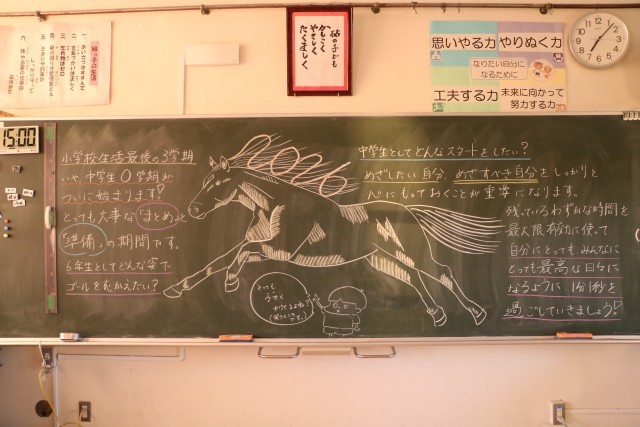 砧っ子の生活
砧の子ども
かしこく
やさしく
たくましく
思いやる力
やりぬく力
なりたい自分に
なるために
工夫する力
未来に向かって
努力する力
15:00
小学校生活最後の3学期
いや、中学生0学期が
ついに始まります!
とっても大事な「まとめ」と
「準備」の期間です。
6年生としてどんな姿で
ゴールをむかえたい?
2026
中学生としてどんなスタートをしたい?
めざしたい自分、めざすべき自分をしっかりと
心にもっておくことが重要になります。
残っているわずかな時間を
最大限有効に使って
自分にとっても、みんなに
とっても最高な日々に
なるように1分1秒を
過ごしていきましょう!